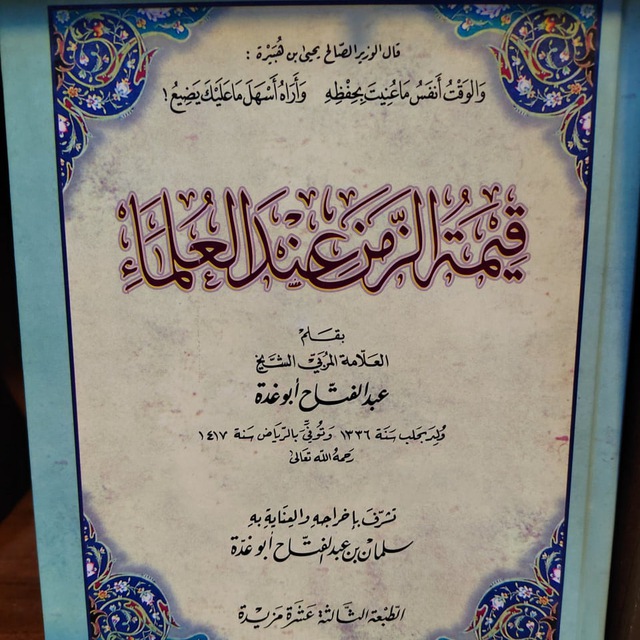 قال الوزير الصالح يحيى ابن هُبَيْرَة :
وَالوَقْتُ أَنفَسُ مَا عُنِيتَ بِحِفْظِهِ وَأَرَاهُ أَسْهَلَ مَا عَلَيْكَ يَضِيعُ!
قِيمَةُ الزَّمَنِ عِنْدَ العُلَمَاءِ
بقلم
العلّامة المربّي الشيخ
عبد الفتّاح أبو غدة
وُلِدَ بحلب سَنَة ١٣٣٦ وَتُوفِّيَ بالرِّيَاض سَنة ١٤١٧
رحمهُ الله تعالى
تشرّف بإخراجه والعناية به
سلمان بن عبد الفتّاح أبو غدّة
الطبعة الثالثة عشرة مَزِيدة